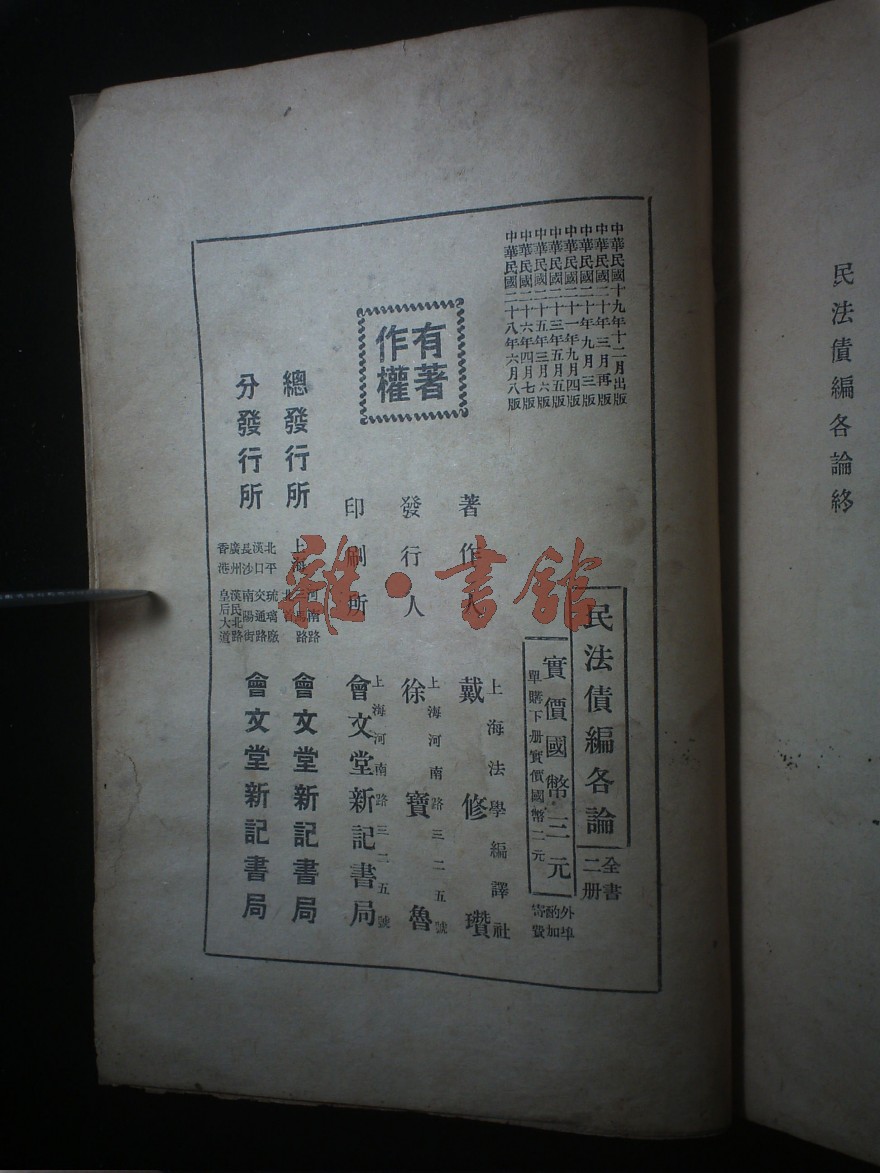 民法債編各論終
中華民國十九年十二月出版
中華民國二十年三月再版
中華民國二十年九月三版
中華民國二十一年九月四版
中華民國二十三年五月五版
中華民國二十五年三月六版
中華民國二十六年四月七版
中華民國二十八年六月八版
民法債編各論
全書
二册
實價國幣三元
單購下册實價國幣二元
外埠
酌加
寄費
著作人
上海法學編譯社
戴修瓚
發行人
上海河南路三二五號
徐寶魯
印刷所
上海河南路三二五號
會文堂新記書局
有著
作權
總發行所
上海
河南路
三馬路
會文堂新記書局
分發行所
北平 琉璃廠
漢口 交通路
長沙 南陽街
廣州 漢民北路
香港 皇后大道
會文堂新記書局
雜·書館